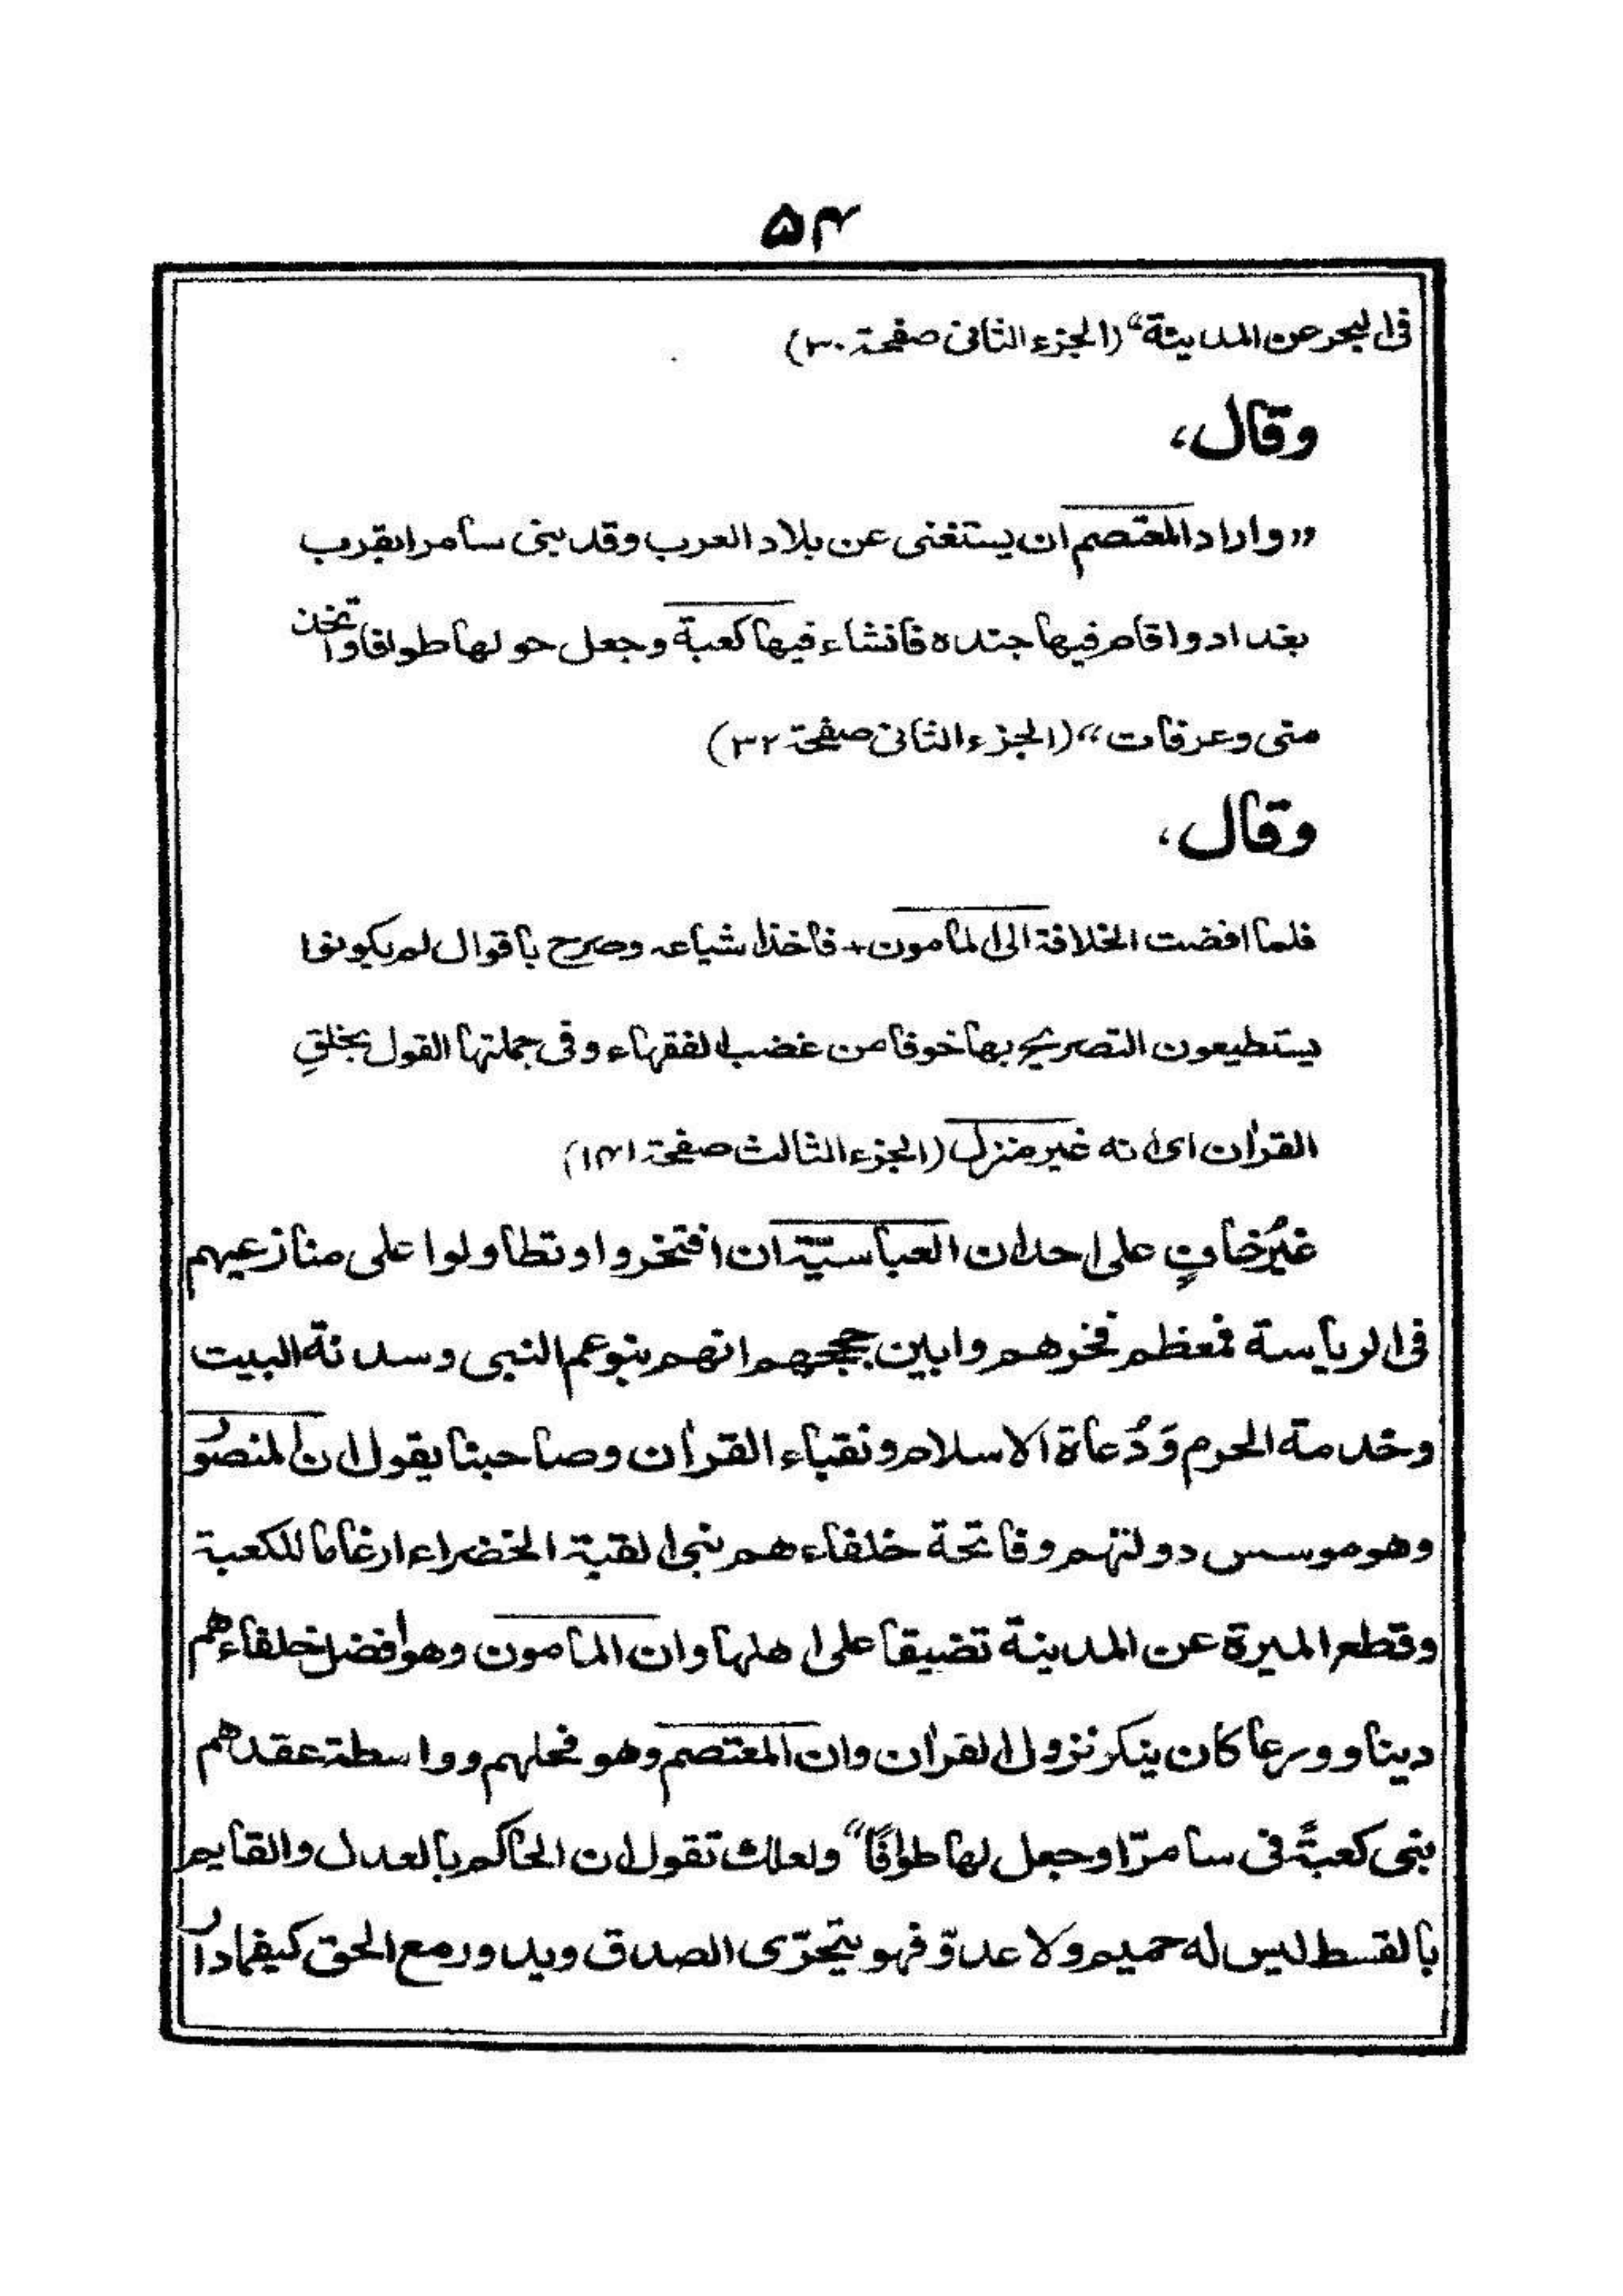 ۵۴
فی البحر عن المدینة“ (الجزء الثانی صفحة ۳۰)
وقال،
”واراد المعتصم ان یستغنی عن بلاد العرب وقد بنی سامرا بقرب
بغداد واقام فیها جنده فانشاء فیها کعبة وجعل حولها طوافا واتخذ
منی وعرفات“ (الجزء الثانی صفحة ۳۲)
وقال،
فلما افضت الخلافة الی المامون + فاخذ اشیاعه وصرح باقوال لم یکونوا
یستطیعون التصریح بها خوفا من غضب الفقهاء وفی جملتها القول بخلقِ
القراٰن ای انه غیر منزل (الجزء الثالث صفحة ۱۴۱)
غیرُ خافٍ علی احد ان العباسیّة ان افتخروا وتطاولوا علی منازعیهم
فی الریاسة فمعظم فخرهم وابین حججهم انهم بنو عم النبی وسدنة البیت
وخدمة الحرم وَدُعاة الاسلام ونقباء القراٰن وصاحبنا یقول ان المنصُور
وهو موسس دولتهم وفاتحة خلفاءهم بنی القبة الخضراء ارغاما للکعبة
وقطع المیرة عن المدینة تضیقا علی اهلها وان المامون وهو افضل خلفاءهم
دینا وورعا کان ینکر نزول القراٰن وان المعتصم وهو فحلهم وواسطة عقدهم
بنی کعبةً فی سامرّا وجعل لها طوافًا“ ولعلك تقول ان الحاکم بالعدل والقایم
بالقسط لیس له حمیم ولا عدوّ فهو یتحرّی الصدق ویدور مع الحق کیفما دار